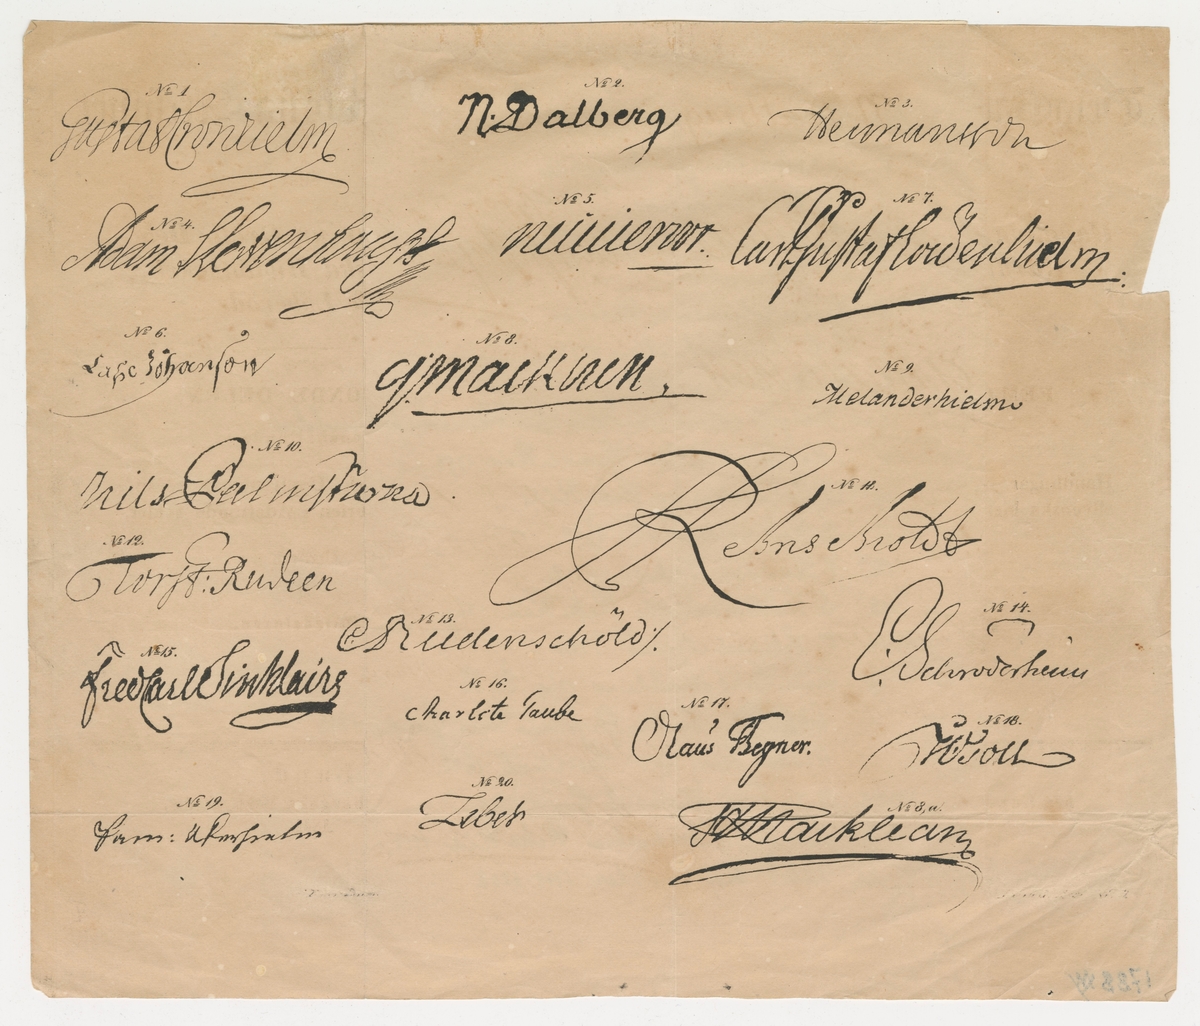 № 1.
Gustaf Cronhielm
№ 2.
N. Dalberg
№ 3.
Hermansson
№ 4.
Adam Lewenhaupt
№ 5.
№ 7.
Carl Gustaf Nordenhielm.
№ 6.
Lasse Johanson
№ 8.
№ 9.
Melanderhielm
№ 10.
Nils Palmstierna
№ 11.
Rehnschöldt
№ 12.
Torst: Rudeen
№ 13.
C Rudenschöld /.
№ 14.
E. Schröderheim
№ 15.
Fred Carl Sinklaire
№ 16.
Charlotte Taube
№ 17.
Olaus Tegner.
№ 18.
Toll
№ 19.
Sam: Åkerhielm
№ 20.
Zebet
№ 8, a.
Macklean